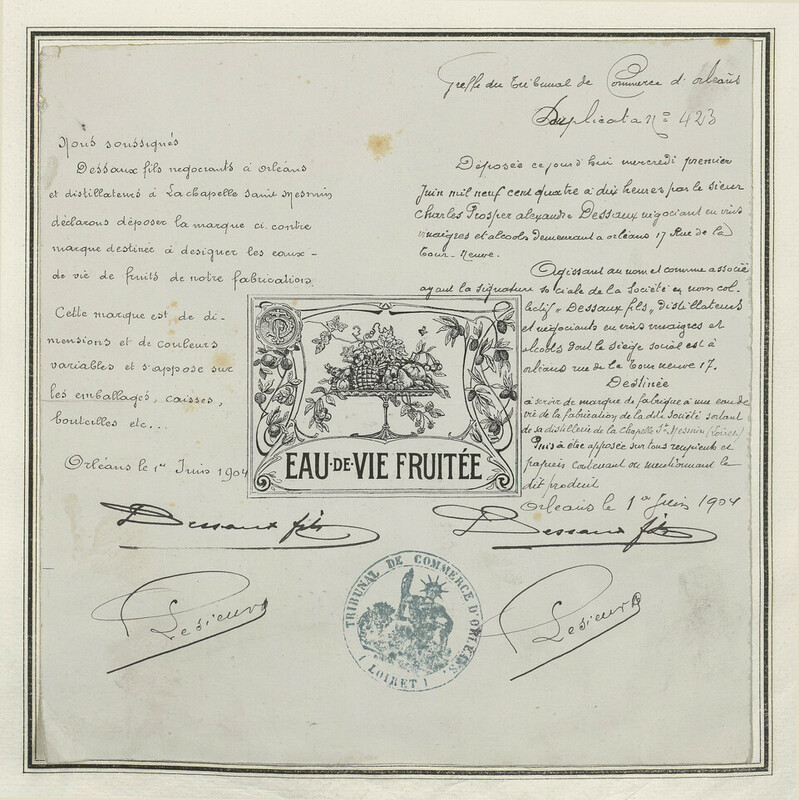 Nous soussignés
Dessaux fils négociants à Orléans
et distillateurs à La chapelle Saint Mesmin
déclarons déposer la marque ci. contre
marque destinée à désigner les eaux-
de vie de fruits de notre fabrication.
Cette marque est de di-
mensions et de couleurs
variables et s'appose sur
les emballages, caisses,
bouteilles etc...
Orléans le 1er Juin 1904
Dessaux fils
Lesieur
Greffe du Tribunal de Commerce d'orléans
Duplicata No 423
Déposée ce jourd'hui mercredi premier
Juin mil neuf cent quatre à dix heures par le sieur
Charles Prosper alexandre Dessaux négociant en vins
vinaigres et alcools demeurant a orléans 17 Rue de la
Tour-Neuve.
Agissant au nom et comme associé
ayant la signature sociale de la Société en nom col-
lectif "Dessaux fils" distillateurs
et négociants en vins vinaigres et
alcools dont le siège social est à
orléans rue de la Tour neuve 17.
Destinée
à servir de marque de fabrique à une eau de
vie de la fabrication de la dite Société sortant
de sa distillerie de la Chapelle St. Mesmin (Loiret)
Puis à être apposée sur tous récipients et
papiers contenant ou mentionnant le
dit produit
Orléans le 1er Juin 1904
Dessaux fils
Lesieur
EAU-DE-VIE FRUITÉE
TRIBUNAL DE COMMERCE D'ORLÉANS.
(LOIRET)